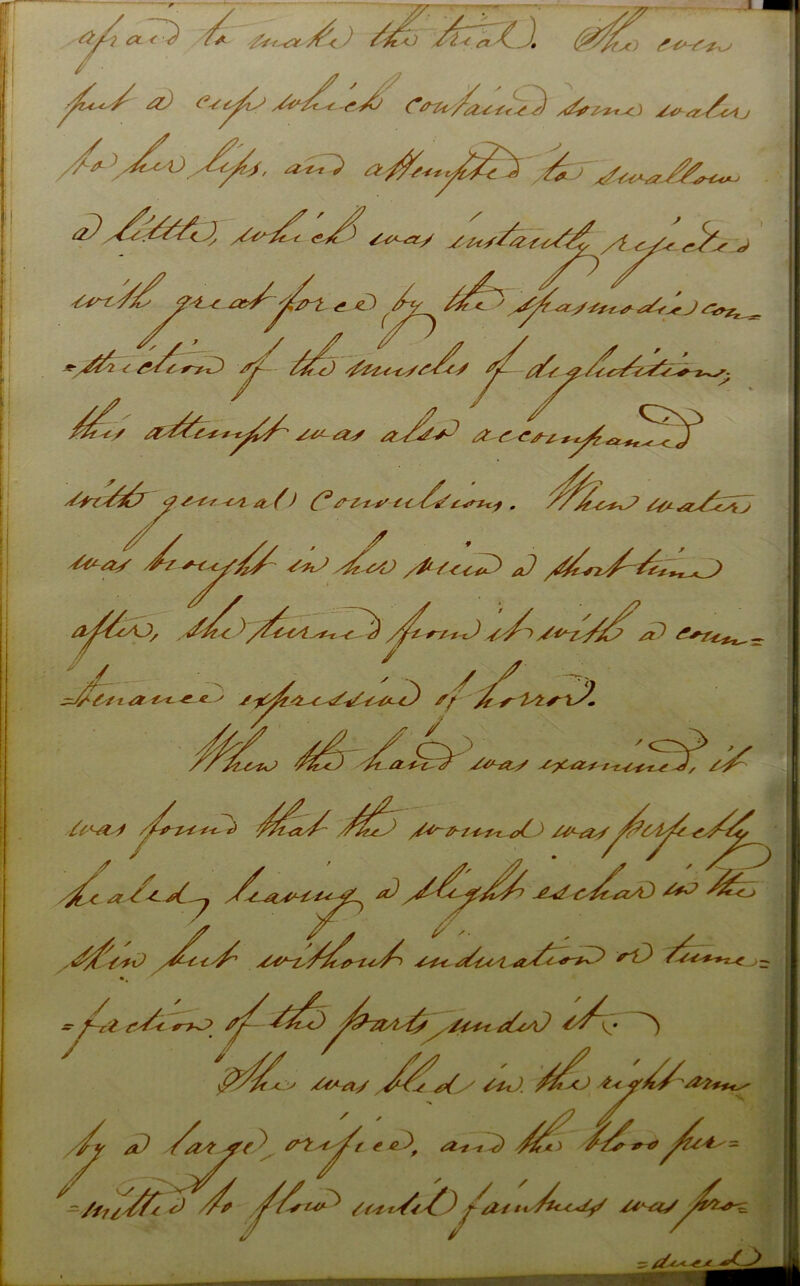 afraid to make the trial. She even
put a cup which contained some water
to her lips, and attempted to swallow
a little, which was instantly rejected
with great force by the spasmodic con=
=striction of the muscles of deglutition;
this attempt was also accompanied
with general convulsions. When water
was brought in her view a short time
after, she turned from it with a coun=
=tenance expressive of horror.
When the hand was examined, it
was found that the wound was perfectly
healed, leaving a slight eschar in the
skin but without induration or tume=
=faction of the parts under it.
She was bled in the right arm
by a large orifice, and the blood per=
=mitted to flow until faintness was pro=
=duced